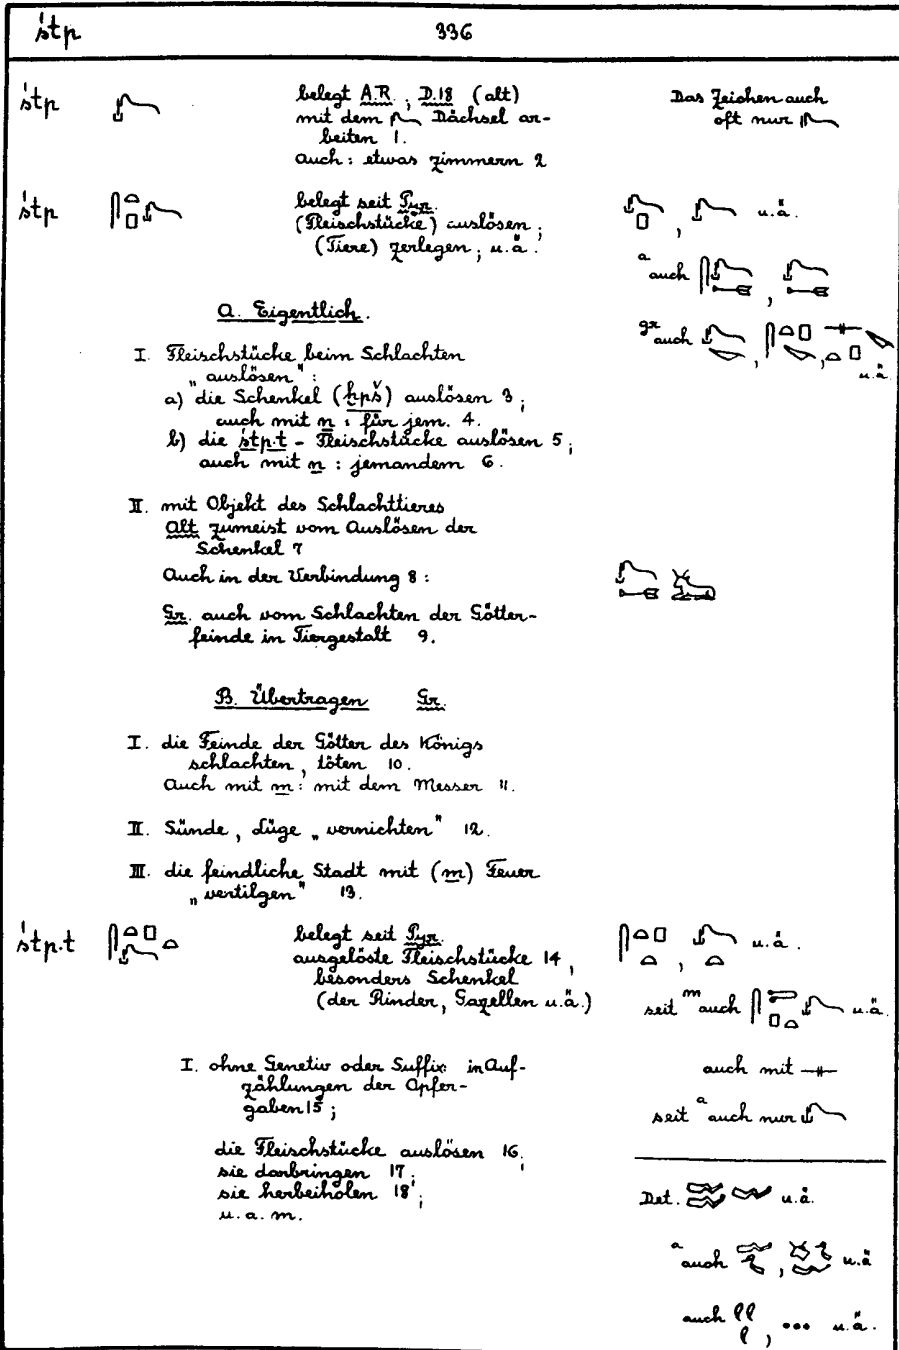 śtp 336
śtp belegt A.R., D.18 (alt) Das Zeichen auch
mit dem Dächsel ar- oft nur
beiten 1.
Auch: etwas zimmern 2
śtp belegt seit Pyr. u.ä.
(Fleischstücke) auslösen;
(Tiere) zerlegen; u.ä.
a auch
A. Eigentlich.
gr auch
u.ä.
I. Fleischstücke beim Schlachten
„auslösen":
a) die Schenkel (ḫpš) auslösen 3;
auch mit n: für jem. 4.
b) die śtp.t - Fleischstücke auslösen 5;
auch mit n: jemandem 6.
II. mit Objekt des Schlachttieres
Alt zumeist vom Auslösen der
Schenkel 7
Auch in der Verbindung 8:
Gr. auch vom Schlachten der Götter-
feinde in Tiergestalt 9.
B. Übertragen Gr.
I. die Feinde der Götter des Königs
schlachten, töten 10.
Auch mit m: mit dem Messer 11.
II. Sünde, Lüge „vernichten" 12.
III. die feindliche Stadt mit (m) Feuer
„vertilgen" 13.
śtp.t belegt seit Pyr. u.ä.
ausgelöste Fleischstücke 14,
besonders Schenkel
(der Rinder, Gazellen u.ä.) seit m auch u.ä.
I. ohne Genetiv oder Suffix in Auf- auch mit
zählungen der Opfer-
gaben 15; seit a auch nur
die Fleischstücke auslösen 16;
sie darbringen 17;
sie herbeiholen 18;
u.a.m.
Det. u.ä.
a auch u.ä
auch u.ä.